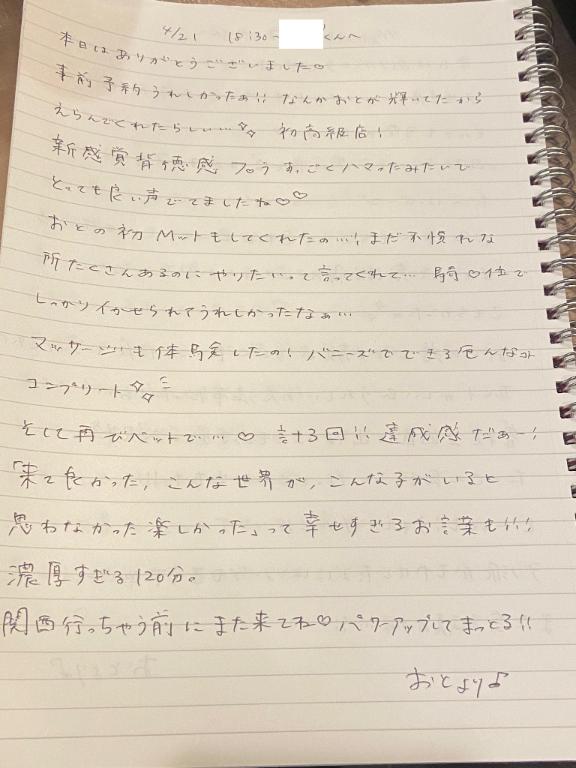 4/21 18:30~ くんへ
本日はありがとうございました♡
事前予約うれしかったぁ!! なんかおとが輝いてたから
えらんでくれたらしい…✧✧ 初高級店!
新感覚背徳感プロうすっごくハマったみたいで
とっても良い声でてましたね♡♡
おとの初Mットもしてくれたの…! まだ不慣れな
所たくさんあるのにやりたいって言ってくれて… 騎♡位で
しっかりイかせられてうれしかったなぁ…
マッサージも体験したの! バニーズでできる色んなコト
コンプリート✧✧
そして再びベットで…♡ 計3回!! 達成感だぁー!
「来て良かった, こんな世界が, こんな子がいると
思わなかった楽しかった」って幸せすぎるお言葉も!!!
濃厚すぎる120分。
関西行っちゃう前にまた来てね♡ パワーアップしてまっとる!!
おとより♪